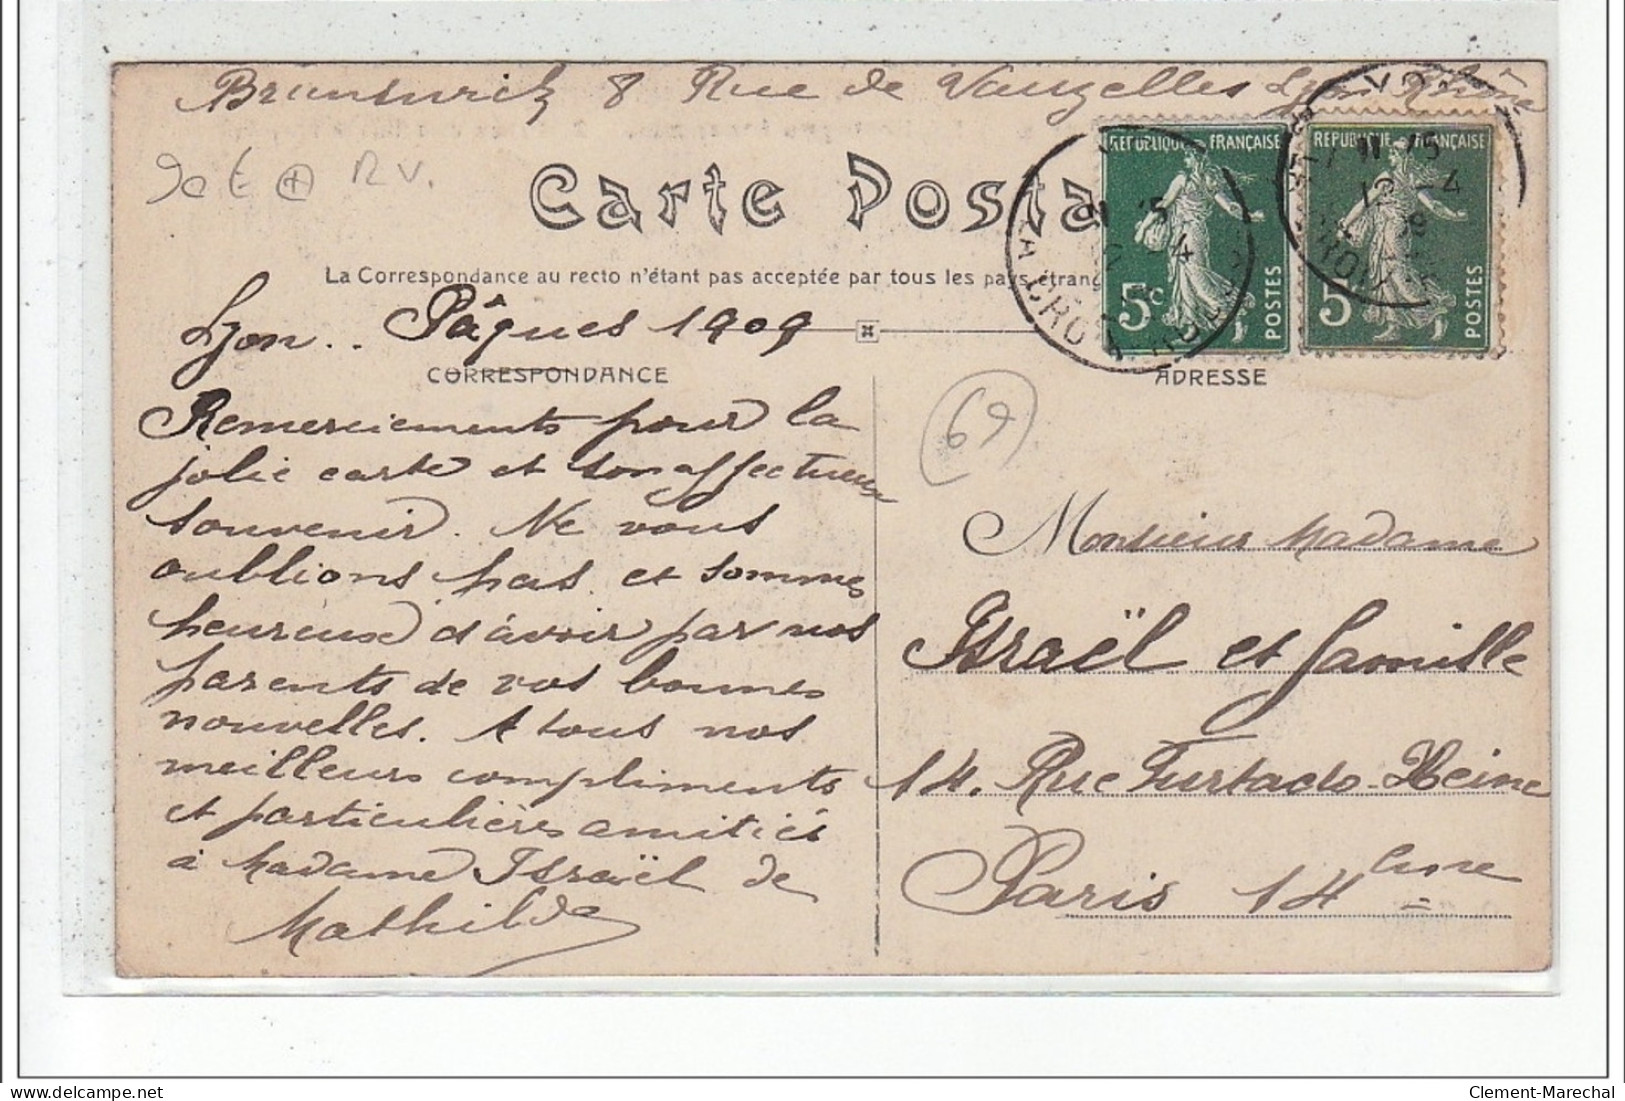 Brunswick 8 Rue de Vauzelles Lyon Rhône
RV.
Carte Posta
La Correspondance au recto n'étant pas acceptée par tous les pays étrang
RÉPUBLIQUE FRANÇAISE
5c
POSTES
REPUBLIQUE FRANÇAISE
5
POSTES
12 -4
09
Lyon.. Pâques 1909
CORRESPONDANCE
ADRESSE
69
Remerciements pour la
jolie carte et son affectueux
souvenir. Ne vous
oublions pas et sommes
heureux d'avoir par nos
parents de vos bonnes
nouvelles. A tous nos
meilleurs compliments
et particulières amitiés
à Madame Israël de
Mathilde
Monsieur Madame
Israël et famille
14. Rue Furtado-Heine
Paris 14ème
Clement-Marechal